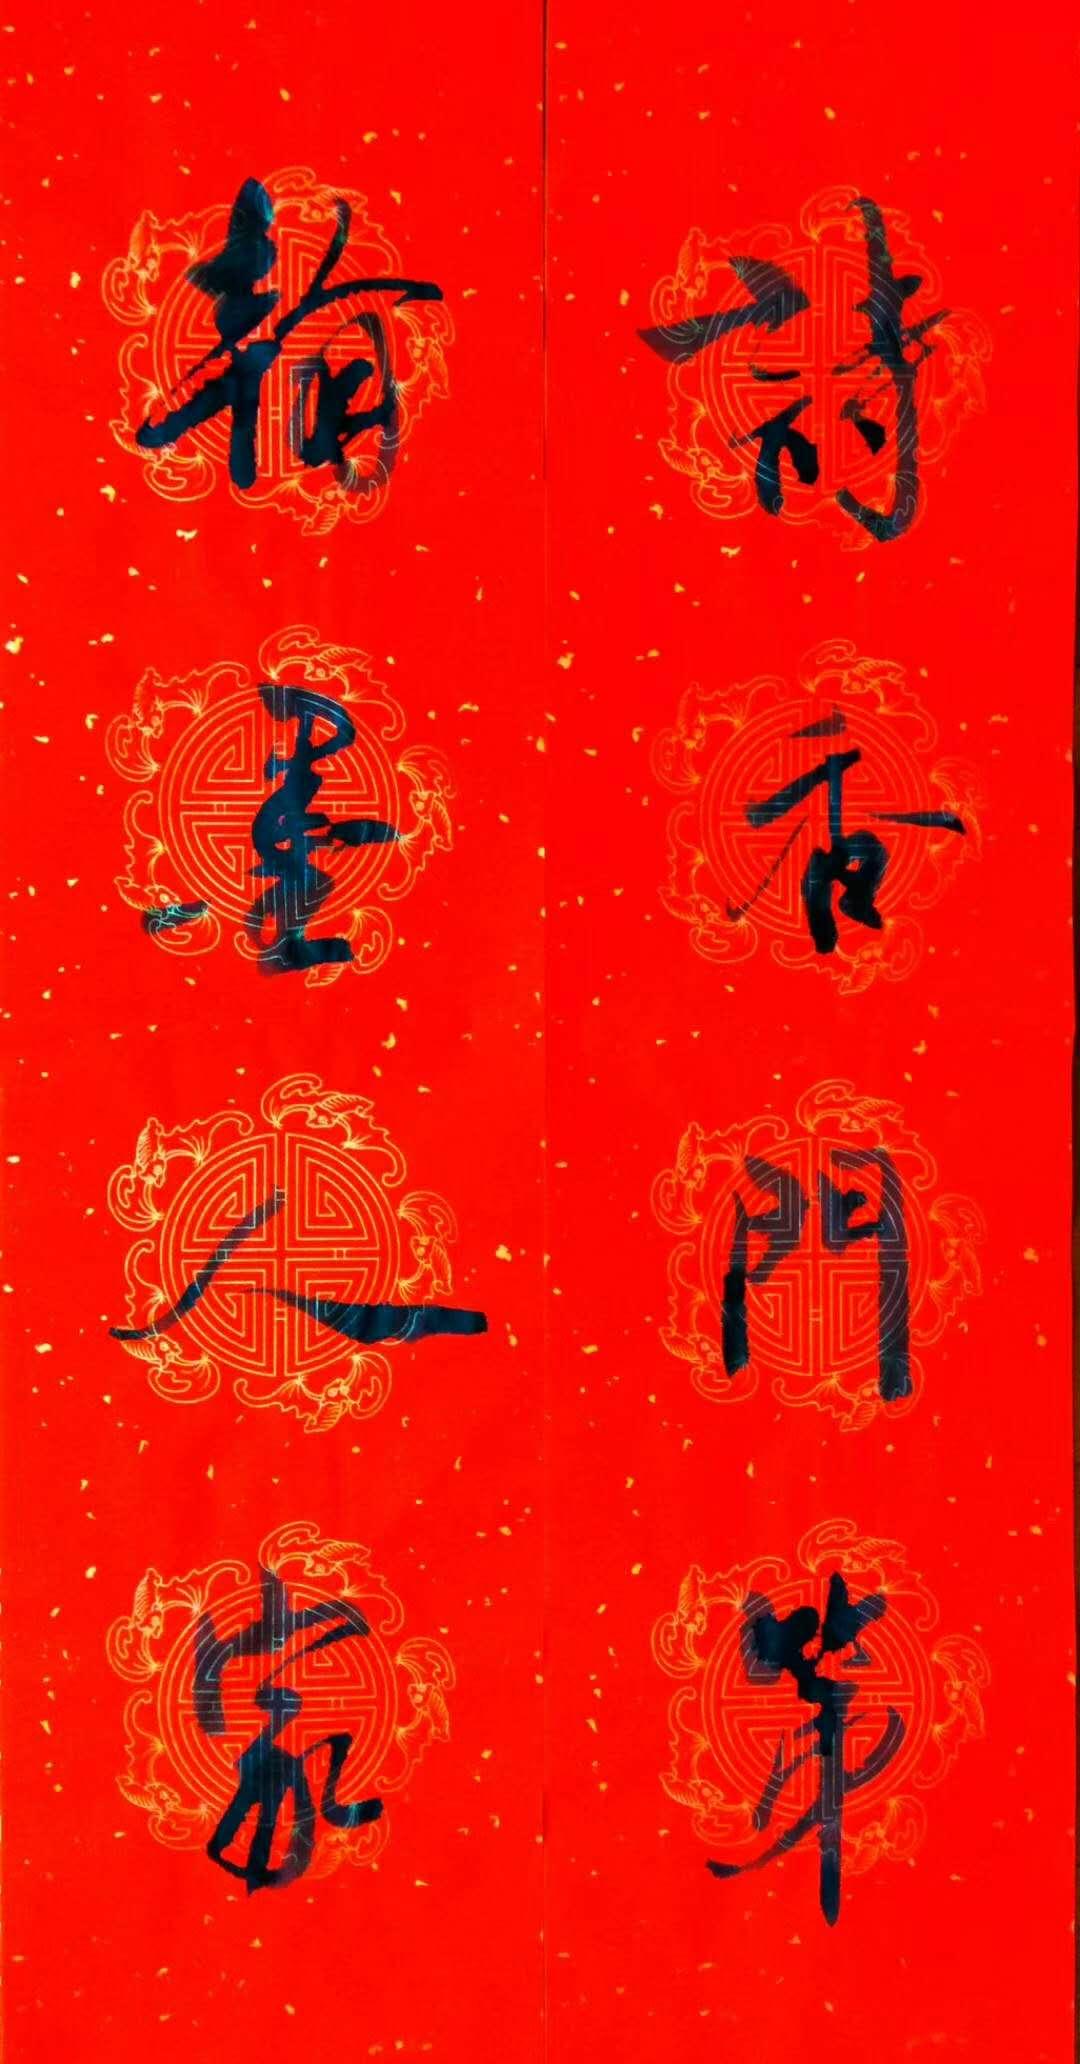 詩香門第
翰墨人家